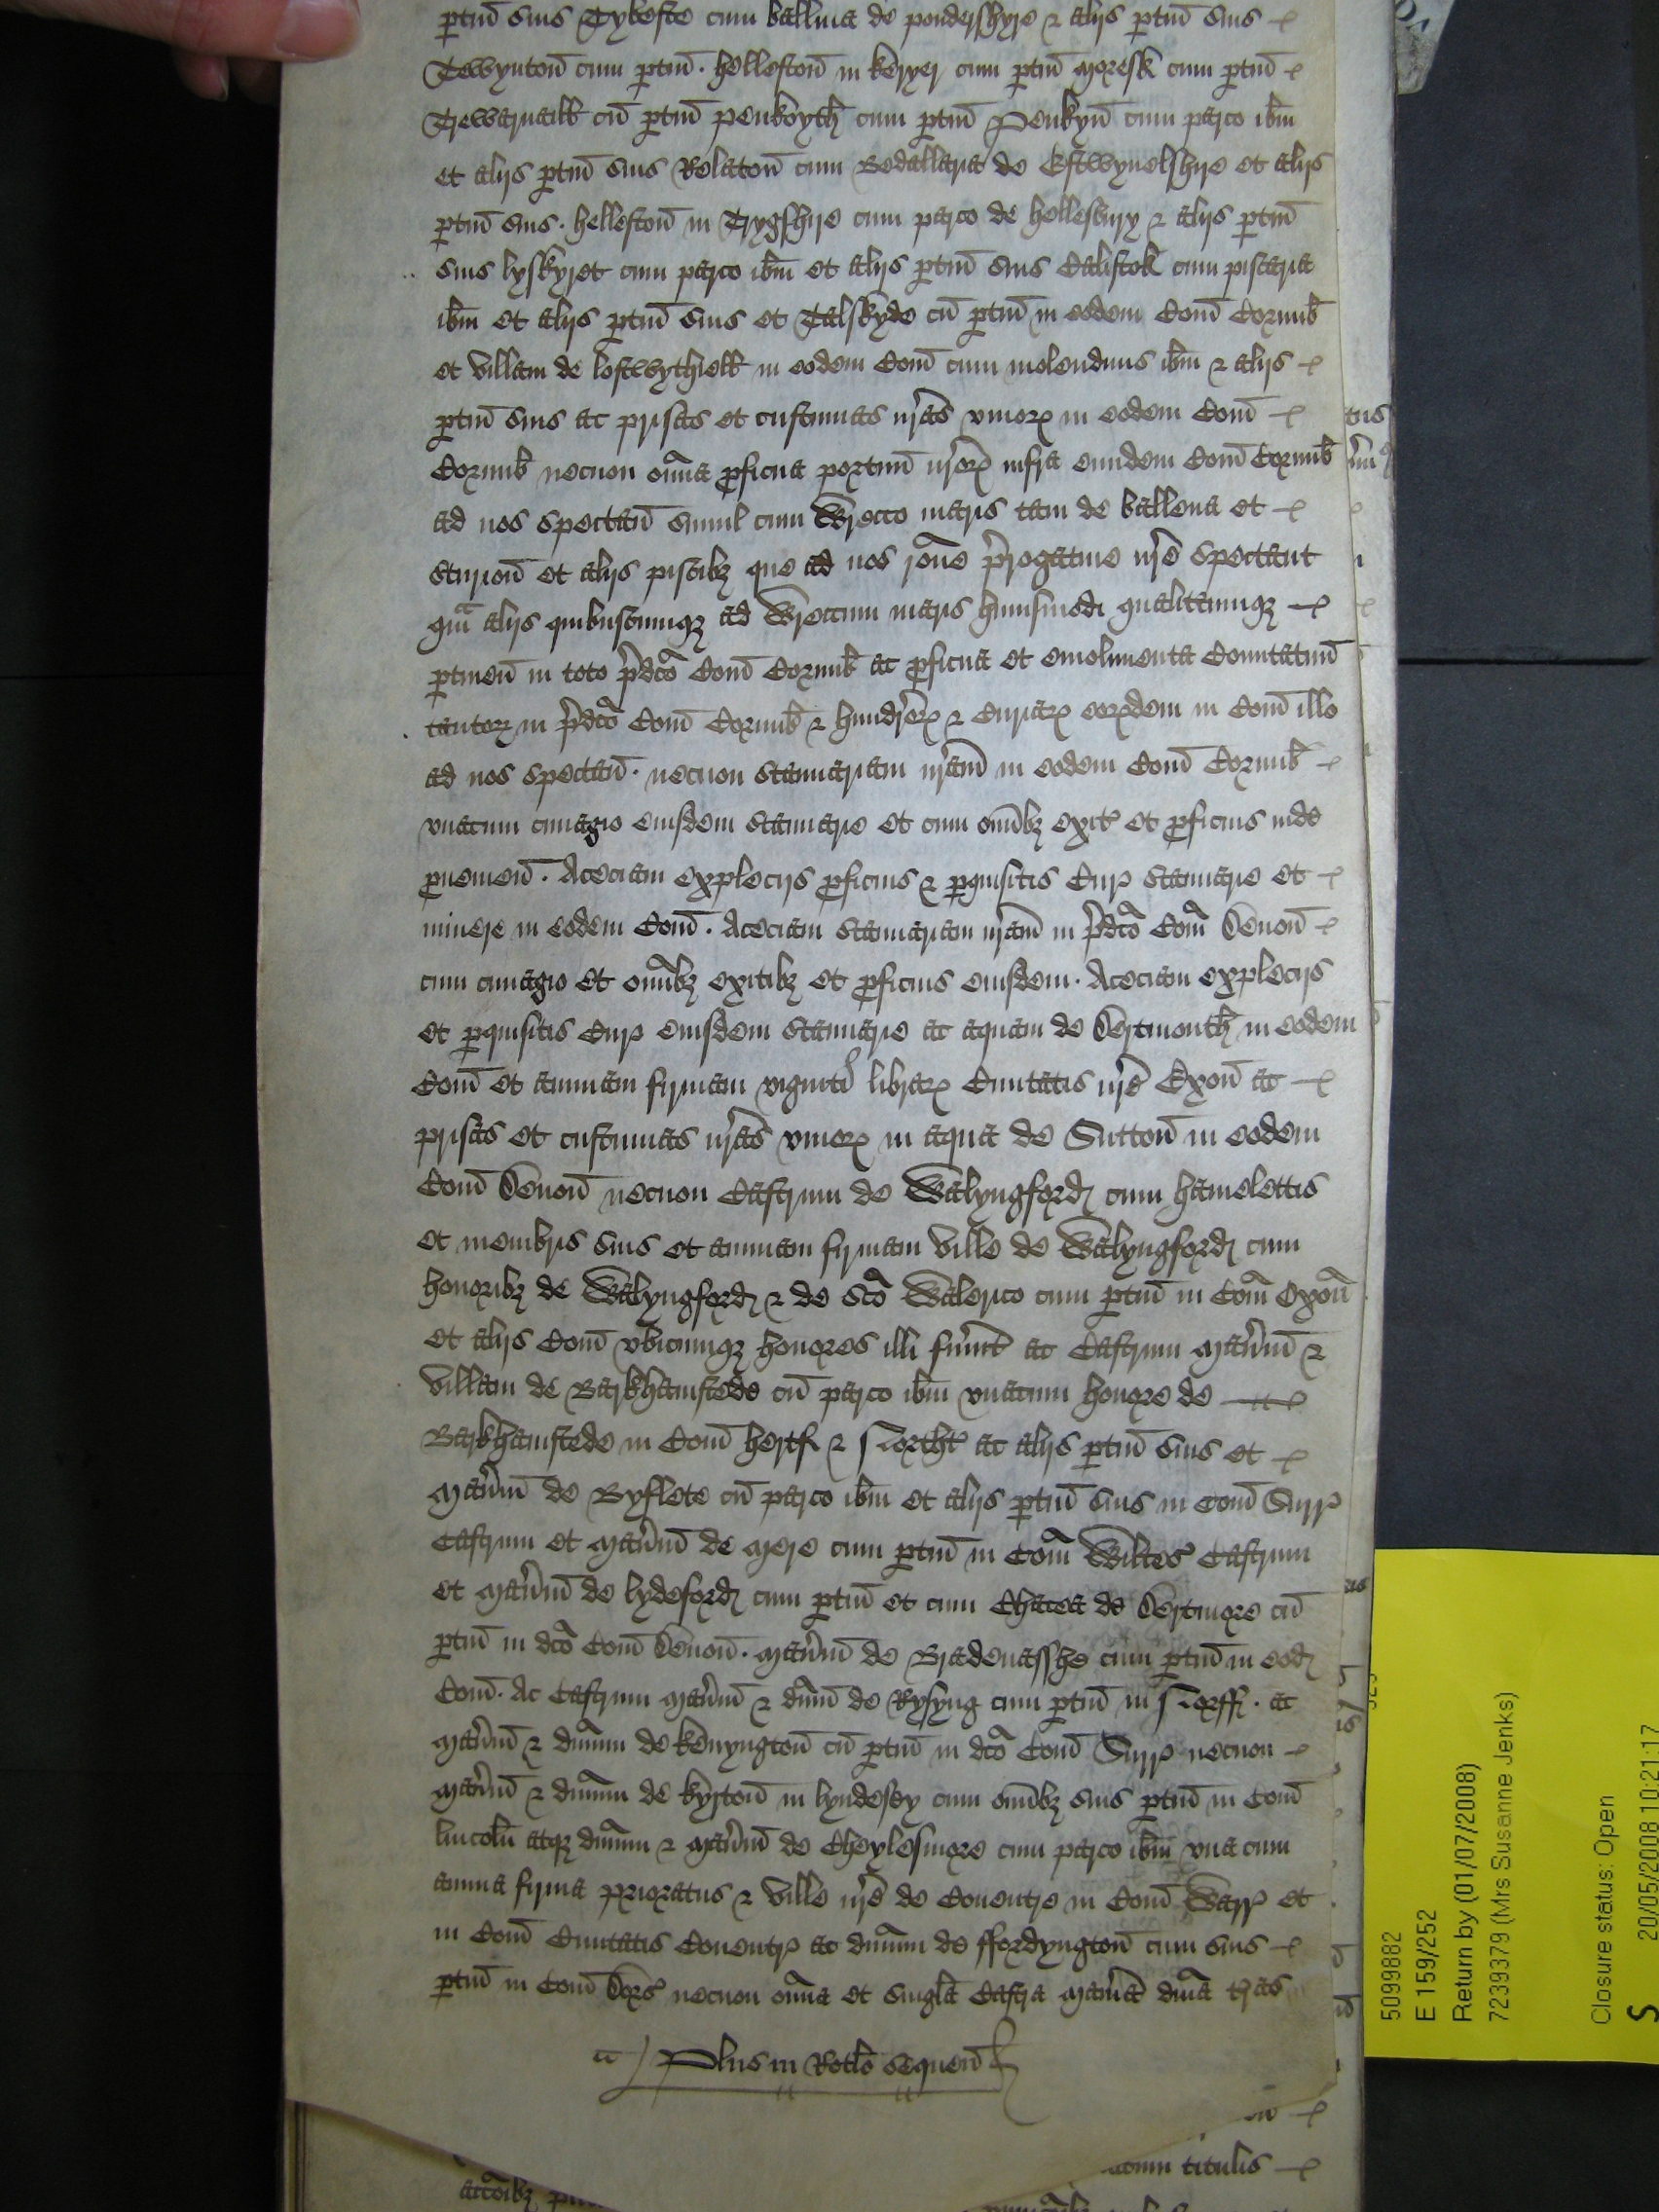 ptiñ suis Tybeste cum balliua de pondershyre & alijs ptiñ suis
Tewyntoñ cum ptiñ . hellestoñ in keryer cum ptiñ moresk cum ptiñ
Trewarnaill cū ptiñ penkoyth cum ptiñ Penkyñ cum parco ibm̄
et alijs ptiñ suis Relatoñ cum Bedallaria de Estwynelshire et alijs
ptiñ suis . hellestoñ in Trygshire cum parco de hellesbury & alijs ptiñ
suis lyskyret cum parco ibm̄ et alijs ptiñ suis Calistok cum piscaria
ibm̄ et alijs ptiñ suis et Talskyde cū ptiñ in eodem Com̄ Cornub
et villam de lostwythiell in eodem Com̄ cum molendinis ibm̄ & alijs
ptiñ suis ac prisas et custumas nr̄as vinorꝝ in eodem Com̄
Cornub necnon om̄ia ꝓficua portuū nr̄orꝝ infra eundem Com̄ Cornub
ad nos spectañ simul cum Wrecco maris tam de ballena et
sturioñ et alijs piscibꝫ que ad nos rōne prerogatiue nr̄e spectant
qᵃm alijs quibuscumqꝫ ad Wreccum maris huiusmodi qualitercumqꝫ
ptineñ in toto p̄dc̄o Com̄ Cornub ac ꝓficua et emolumenta Comitatuū
tentorꝝ in p̄dc̄o Com̄ Cornub & hundredorꝝ & Curiarꝝ eorꝝdem in Com̄ illo
ad nos spectañ . necnon stannariam nr̄am in eodem Com̄ Cornub
vnacum cunagio eiusdem stannarie et cum om̄ibꝫ exit et ꝓficuis inde
ꝓuenieñ . Aceciam explecijs ꝓficuis & pquisitis Cur stannarie et
minere in eodem Com̄ . Aceciam stannariam nr̄am in p̄dc̄o Com̄ Deuoñ
cum cunagio et om̄ibꝫ exitibꝫ et ꝓficuis eiusdem . Aceciam explecijs
et pquisitis Cur eiusdem stannarie ac aquam de Dertmouth in eodem
Com̄ et annuam firmam viginti librarꝝ Ciuitatis nr̄e Exoñ ac
prisas et custumas nr̄as vinorꝝ in aqua de Suttoñ in eodem
Com̄ Deuoñ necnon Castrum de Walyngford cum hamelettis
et membris suis et annuam firmam ville de Walyngford cum
honoribꝫ de Walyngford & de sc̄o Walerico cum ptiñ in Com̄ Oxoñ
et alijs Com̄ vbicumqꝫ honores illi fuerint ac Castrum maneriū &
villam de Barkhamstede cū parco ibm̄ vnacum honore de
Barkhamstede in Com̄ hertf & Northt ac alijs ptiñ suis et
maneriū de Byflete cū parco ibm̄ et alijs ptiñ suis in Com̄ Surr
Castrum et maneriū de mere cum ptiñ in Com̄ Wiltes Castrum
et maneriū de lydeford cum ptiñ et cum Chacea de Dertmore cū
ptiñ in dc̄o Com̄ Deuoñ . maneriū de Bradenasshe cum ptiñ in eod
Com̄ . Ac Castrum maneriū & dn̄iū de Rysyng cum ptiñ in Norff . ac
maneriū & dn̄ium de kenyngtoñ cū ptiñ in dc̄o Com̄ Surr necnon
maneriū & dn̄ium de kyrtoñ in lyndesey cum om̄ibꝫ suis ptiñ in Com̄
lincolñ atqꝫ dn̄ium & maneriū de Cheylesmore cum parco ibm̄ vna cum
annua firma prioratus & ville nr̄e de Couentre in Com̄ Warr et
in Com̄ Ciuitatis Couentr ac dn̄ium de ffordyngtoñ cum suis
ptiñ in Com̄ Dors necnon om̄ia et singula Castra maneria dn̄ia t̄ras
Plus in Rotlo sequeñ
titulis
5099882
E 159/252
Return by (01/07/2008)
7239379 (Mrs Susanne Jenks)
Closure status: Open
20/05/2008 10:21:17
S